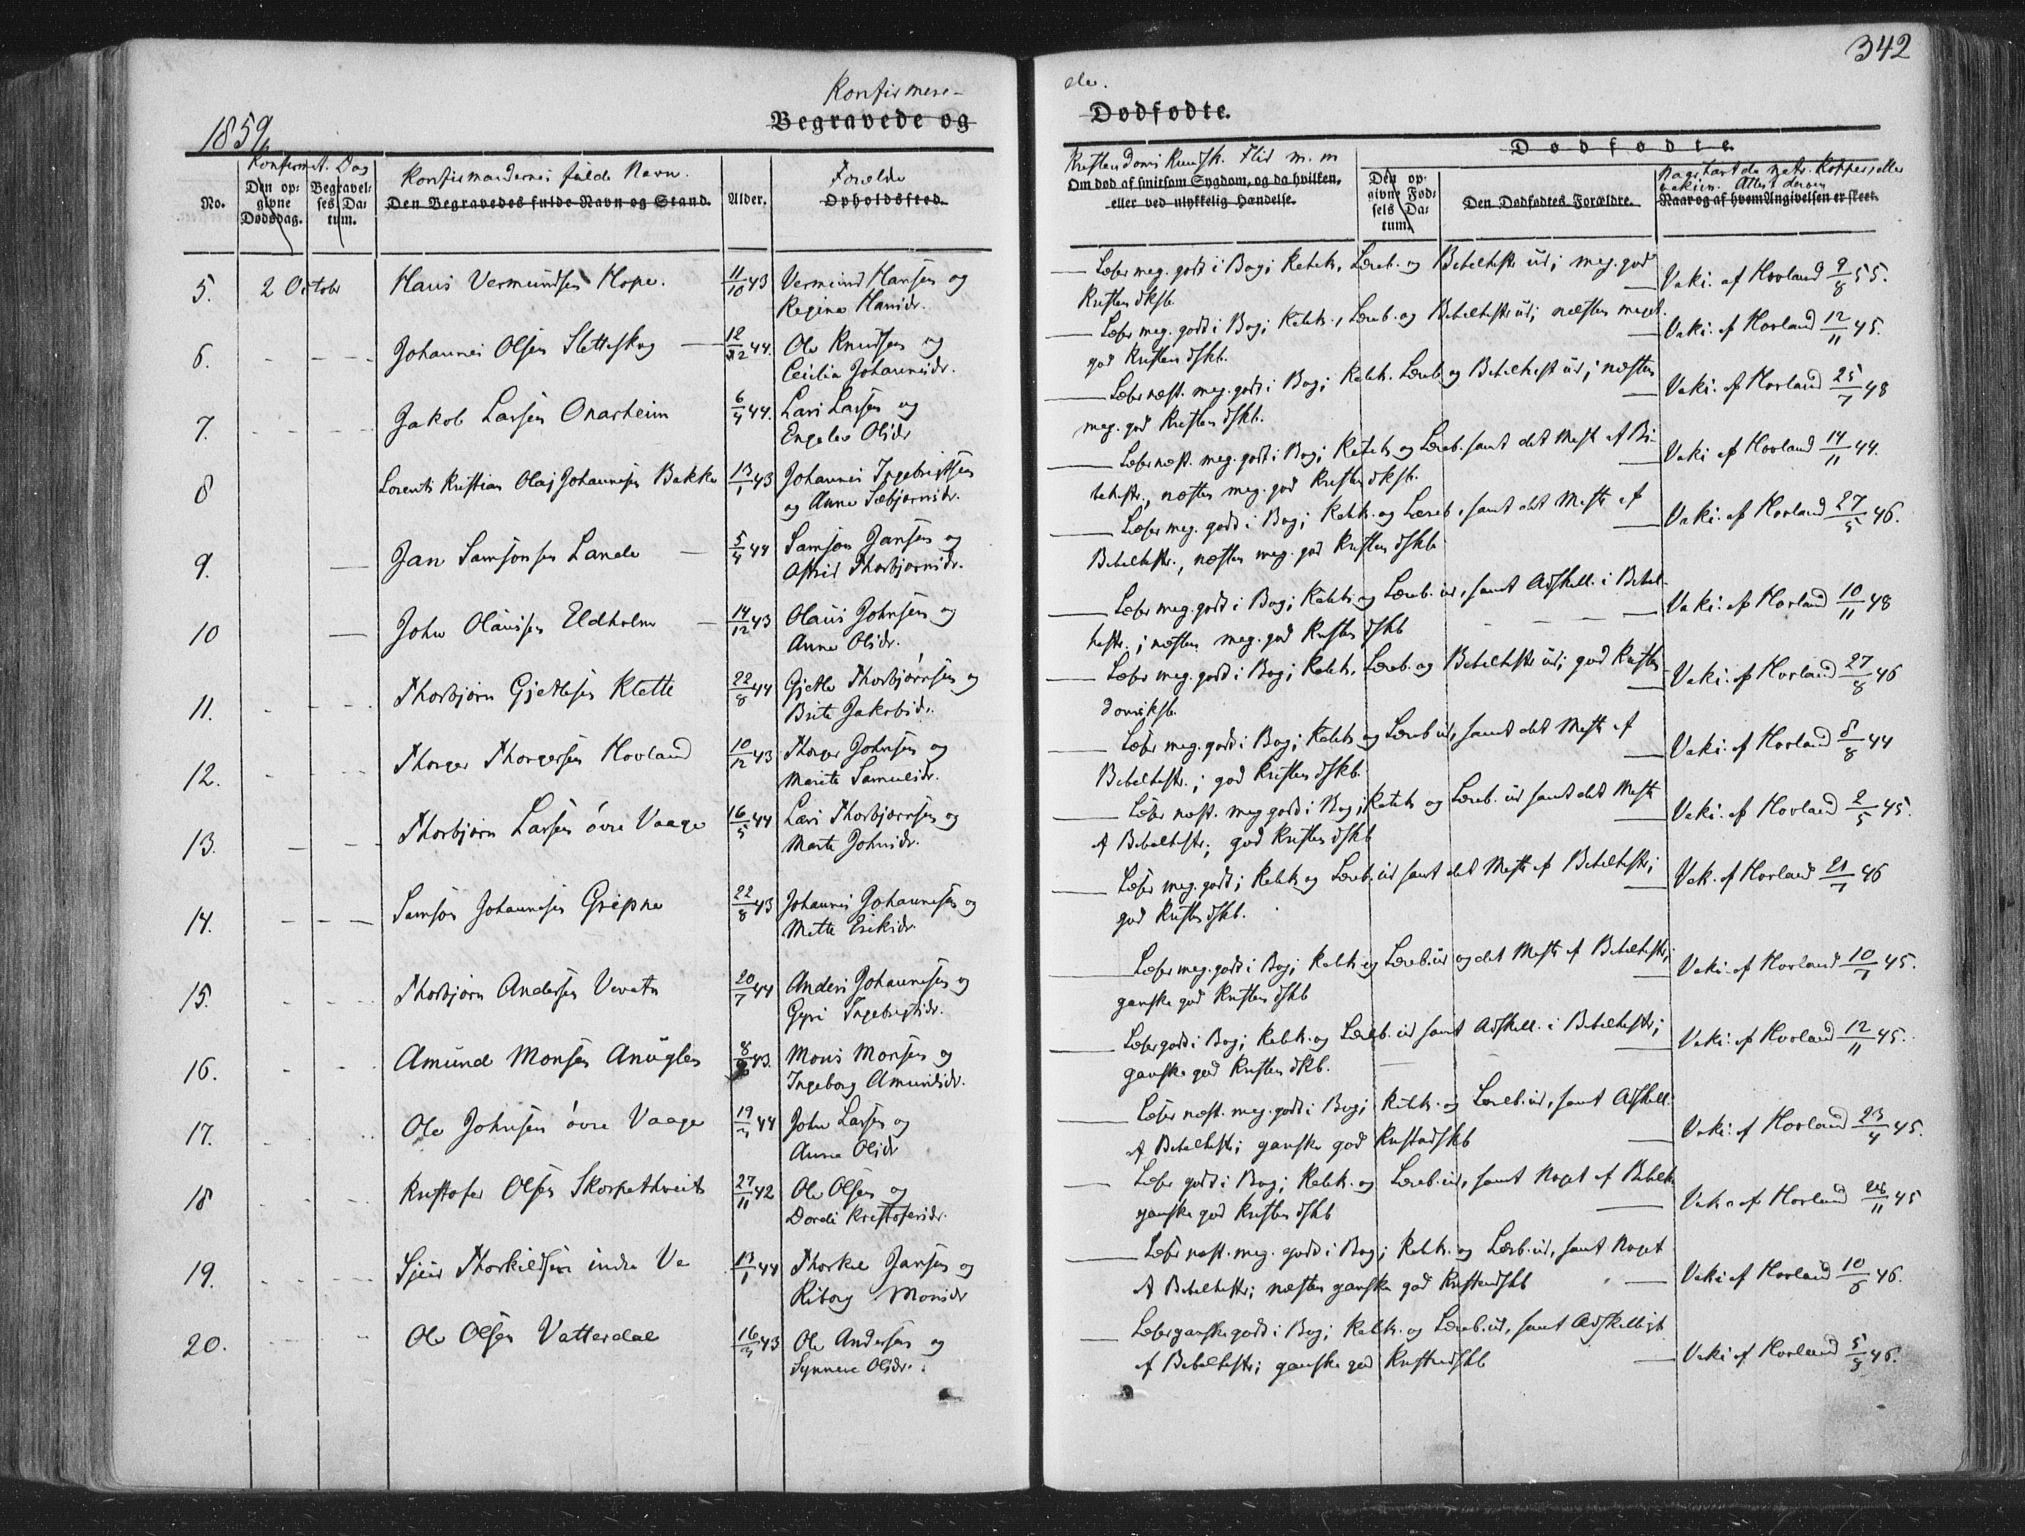 342
Konfirmere-
de.
1859
Begravede og
Dødfødte.
Konfirmat. Dag
Konfirmandernes fulde Navn.
Forældre
Kristendoms Kundsk. Flid m. m
Dødfødte.
No.
Den op-
givne
Dødsdag.
Begravel-
ses Da-
tum.
Den Begravedes fulde Navn og Stand.
Alder.
Opholdssted.
Om død af smitsom Sygdom, og da hvilken,
eller ved ulykkelig Hændelse.
Den op-
givne Fød-
sels Da-
tum.
Den Dødfødtes Forældre.
Naar og af hvem Angivelsen er skeet.
5. 2 Octobr Hans Vermundsen Hope. 11/10 43 Vermund Hansen og
Regine Hansdr.
Læser meg. godt i Bog; Katek., Læreb. og Bibelhistr ud; meg. god
Kristendksk.
Vaki. af Hovland 9/8 55.
6. Johannes Olsen Sletteskog 12/12 44. Ole Knudsen og
Cecilia Johannesdr.
Læser meg. godt i Bog; Katek., Læreb. og Bibelhistr ud; næsten meget
god Kristendskb.
Vaki. af Hovland 12/11 45.
7. Jakob Larsen Onarheim 6/4 44. Lars Larsen og
Engelev Olsdr
Læser næst. meg. godt i Bog; Katek. Læreb og Bibelhist ud; næsten
meg. god Kristendskb.
Vaki. af Hovland 25/7 48
8 Lorents Kristian Olaj Johannesen Bakke 13/1 43 Johannes Ingebrigtsen
og Anne Sæbjørnsdr.
Læser næst. meg. godt i Bog; Katek og Læreb. samt det Meste af Bi-
belhistr., næsten meg. god Kristendksk.
Vaki af Hovland 14/11 44.
9. Jan Samsonsen Lande 5/4 44 Samson Jansen og
Astrid Thorbjørnsdr.
Læser meg. godt i Bog; Katek. og Læreb., samt det Meste af
Bibelhistr., næsten meg. god Kristendskb
Vaki. af Hovland 27/5 46.
10 John Olausen Eldholm 14/12 43 Olaus Johnsen og
Anne Olsdr.
Læser meg. godt i Bog; Katek. og Læreb. ud, samt Adskell. i Bibel-
histr.; næsten meg. god Kristendskb
Vaki. af Hovland 10/11 48
11. Thorbjørn Gjetlesen Klette 22/8 44 Gjetle Thorbjørnsen og
Brite Jakobsdr.
Læser meg. godt i Bog; Katek. Læreb. og Bibelhistr ud; god Kristen-
domsksk.
Vaki. af Hovland 27/8 46
12. Thorger Thorgersen Hovland 10/12 43 Thorger Johnsen og
Marite Samuelsdr.
Læser meg. godt i Bog; Katek og Læreb ud, samt det Meste af
Bibelhistr.; god Kristendskb.
Vaki. af Hovland 8/8 44
13. Thorbjørn Larsen øvre Vaage 16/5 44 Lars Thorbjørnsen og
Marte Johnsdr.
Læser næst. meg godt i Bog; Katek og Læreb. ud samt det Meste
af Bibelhistr.; god Kristendskb
Vaki. af Hovland 2/5 45.
14. Samson Johannesen Gripne 22/8 43 Johannes Johannesen og
Mette Eriksdr.
Læser meg. godt; Katek og Læreb. ud samt det Meste af Bibelhistr;
god Kristendskb.
Vak. af Hovland 21/7 46
15. Thorbjørn Andersen Vevatn 20/7 44 Anders Johannesen og
Gyri Ingebrigtsdr.
Læser meg. godt i Bog; Katek og Læreb. ud og det Meste af Bibelhistr;
ganske god Kristendskb
Vaki. af Hovland 10/7 45.
16. Amund Monsen Anuglen 8/ 43. Mons Monsen og
Ingeborg Amundsdr.
Læser godt i Bog; Katek. og Læreb. ud samt Adskell. i Bibelhistr;
ganske god Kristendkb.
Vaki. af Hovland 12/11 45.
17. Ole Johnsen øvre Vaage 19/3 44 John Larsen og
Anna Olsdr
Læser næst. meg. godt i Bog; Katek. og Læreb. ud, samt Adskell.
af Bibelhistr; ganske god Kristendskb
Vaki. af Hovland 23/4 45.
18 Kristofer Olsen Skorpethveit 27/11 42 Ole Olsen og
Dordi Kristofersdr.
Læser godt i Bog; Katek. og Læreb. ud, samt Noget af Bibelh.
ganske god Kristendskb
Vaki af Hovland 28/11 45
19. Sjur Thorkildsen indre Ve 13/1 44 Thorkel Jansen og
Riborg Monsdr
Læser næst. meg. godt i Bog; Katek. og Læreb. ud, samt Noget
af Bibelhistr; næsten ganske god Kristendskb
Vaki af Hovland 10/6 46.
20. Ole Olsen Vatterdal 16/3 43 Ole Andersen og
Synneve Olsdr.
Læser ganske godt i Bog; Katek. og Læreb. ud, samt Adskilligt
af Bibelhistr; ganske god Kristendskb
Vaki af Hovland 5/9 46.